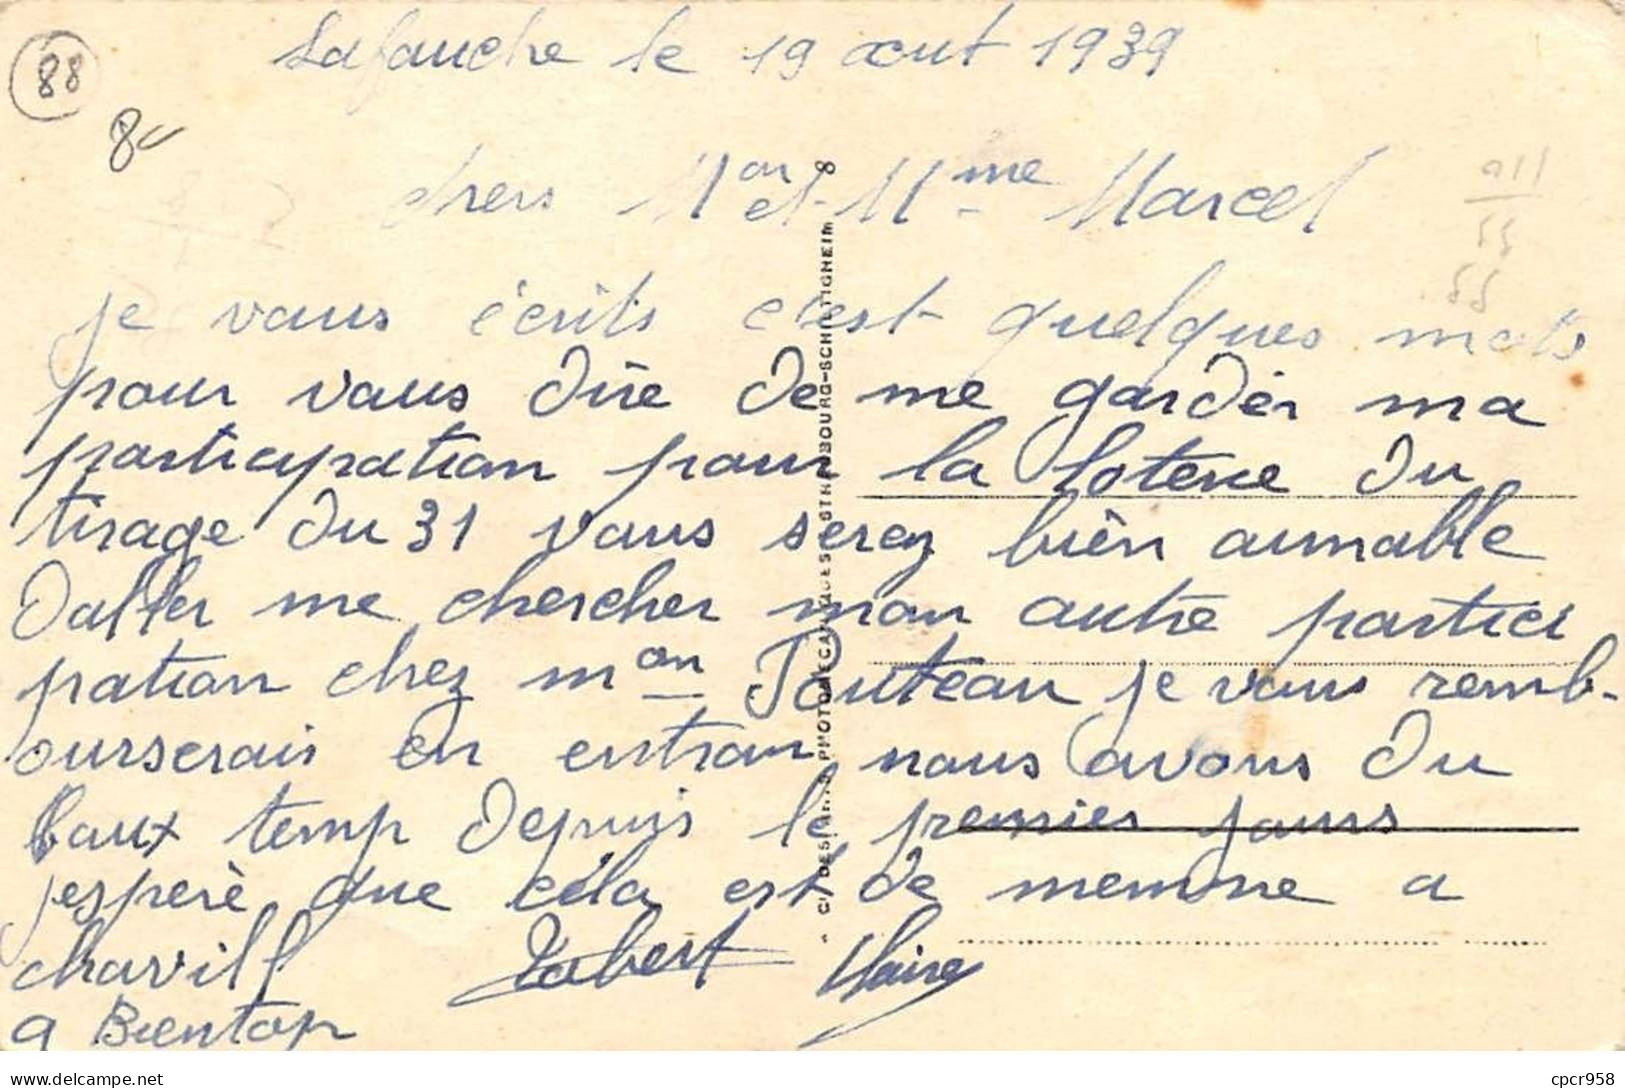 88
Lafauche le 19 aout 1939
8
chers Mon et Mme Marcel
je vous écrits c'est quelques mots
pour vous dire de me garder ma
participation pour la loterie du
tirage du 31 vous serez bièn aimable
daller me chercher mon autre partici
pation chez mon Pouteau je vous remb-
ourserais en entran nous avons du
baux temp depuis le premier jours
jesperè que céla est de memme a
chavill Robert Claire
a Bientop
CIE DES ARTS PHOTOMECANIQUES STRASBOURG-SCHILTIGHEIM 8
cpcr958